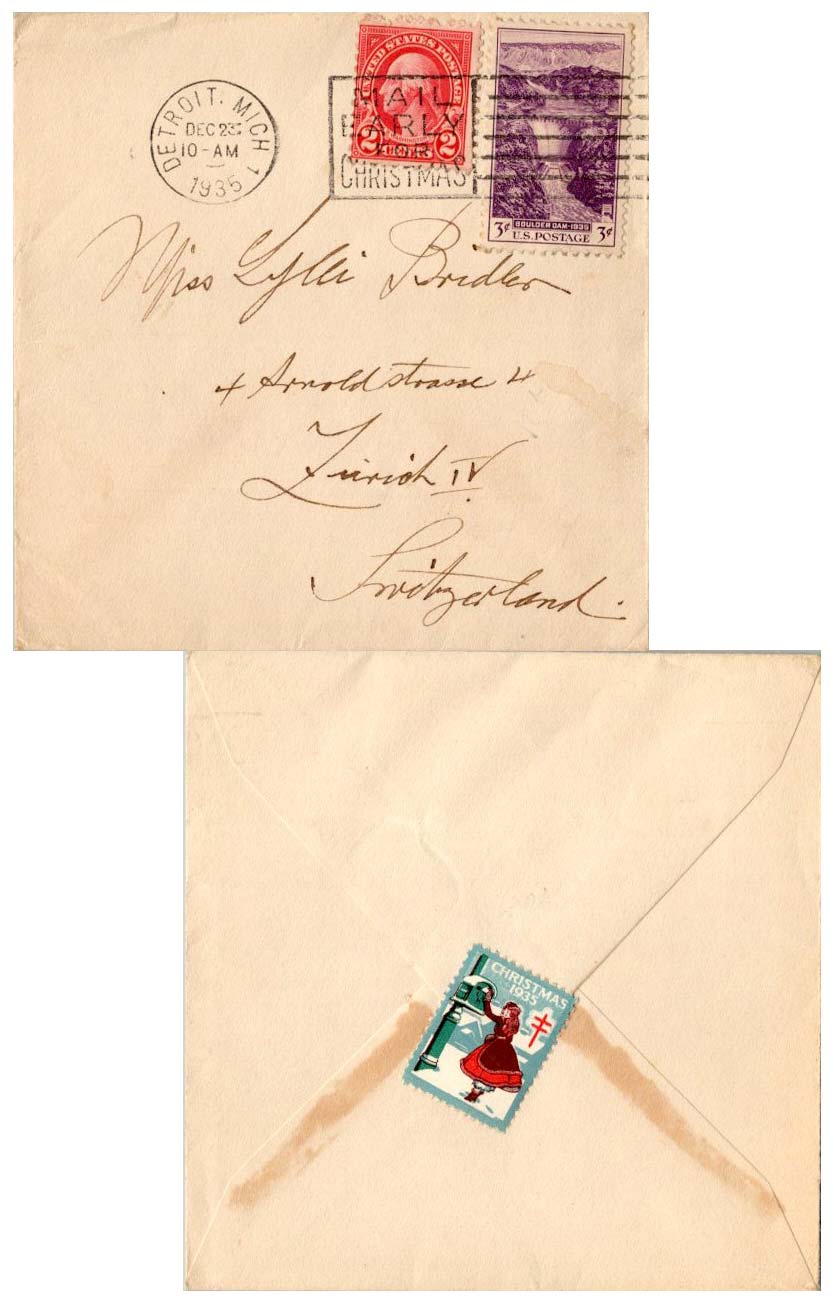 DETROIT, MICH 1
DEC 23
10-AM
1935
MAIL
EARLY
FOR
CHRISTMAS
UNITED STATES POSTAGE
2 CENTS 2
3¢ BOULDER DAM-1935 3¢
U.S. POSTAGE
Miss Lylli Bridler
4 Arnoldstrasse 4
Zürich IV
Switzerland.
CHRISTMAS
1935